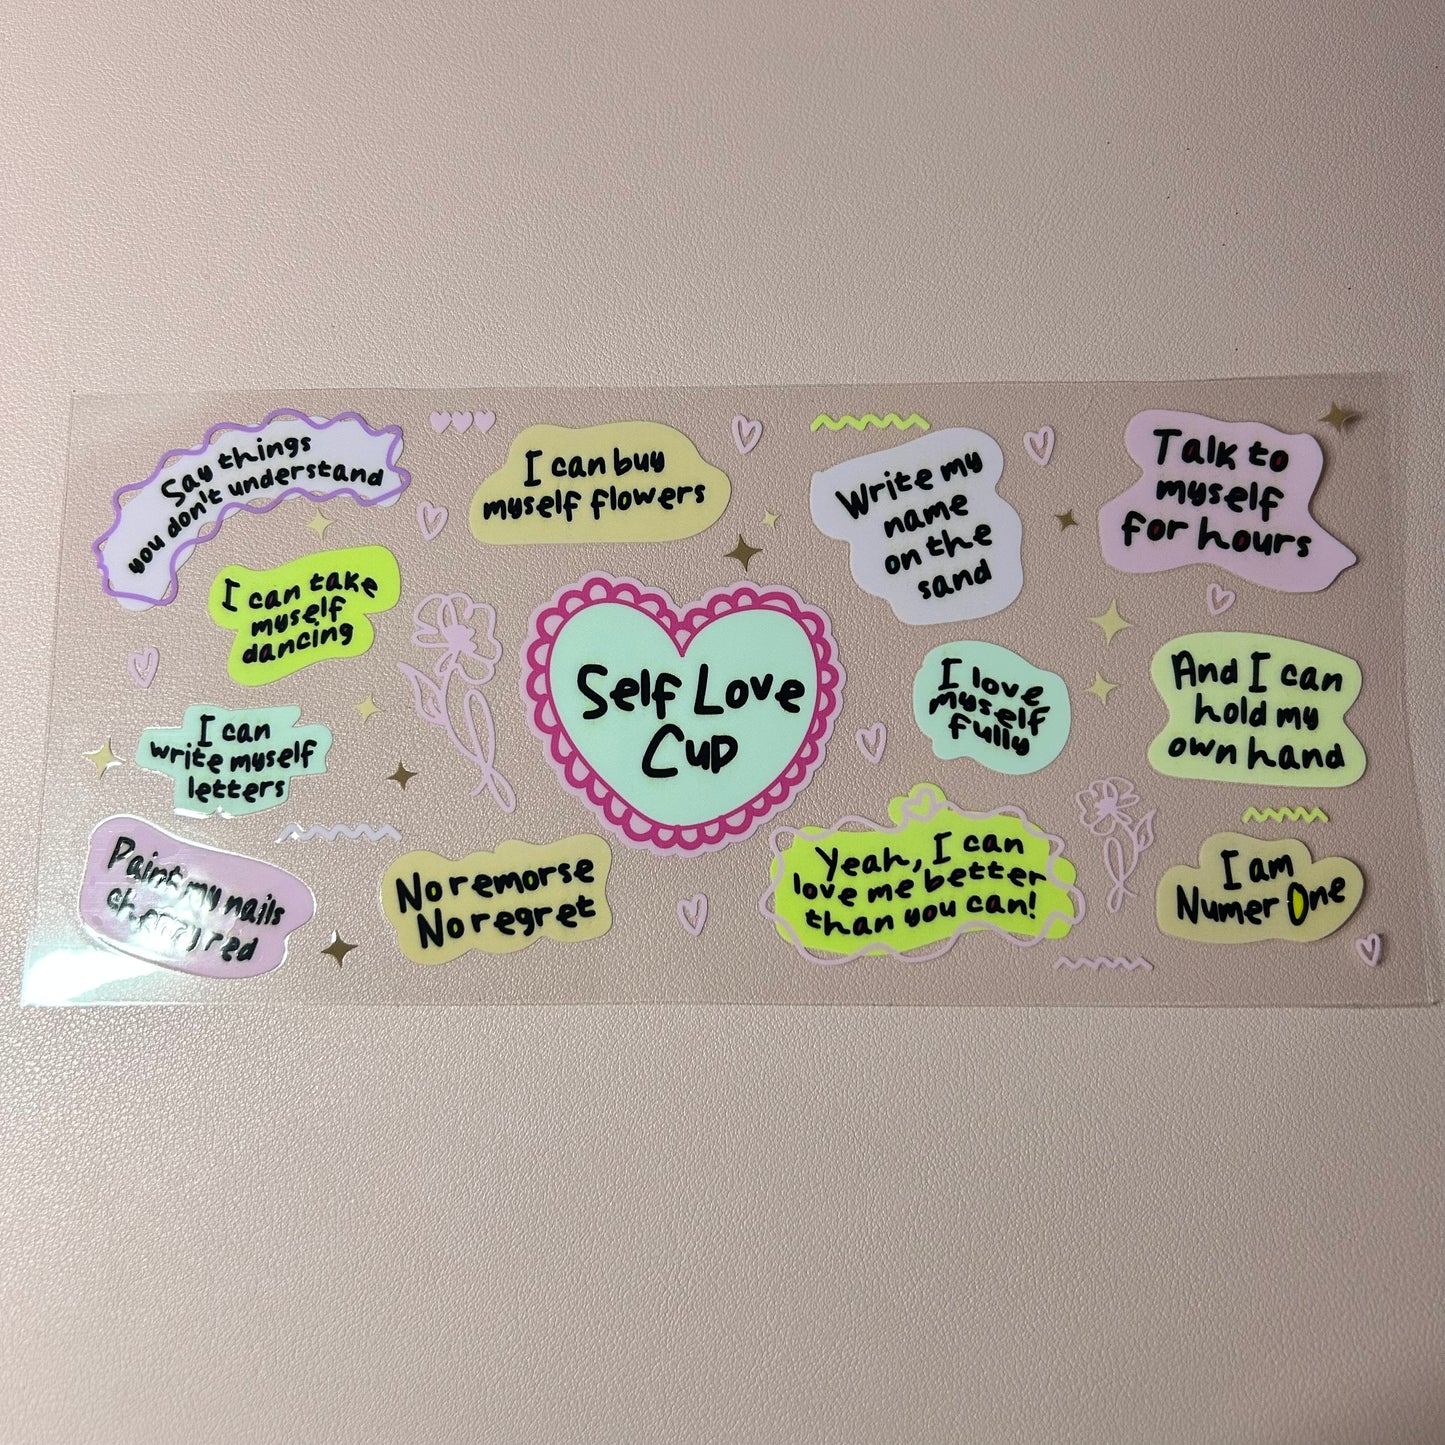 Say things
you don't understand
I can buy
myself flowers
Write my
name
on the
sand
Talk to
myself
for hours
I can take
myself
dancing
Self Love
Cup
I love
myself
fully
And I can
hold my
own hand
I can
write myself
letters
Paint my nails
cherry red
No remorse
No regret
Yeah, I can
love me better
than you can!
I am
Numer One